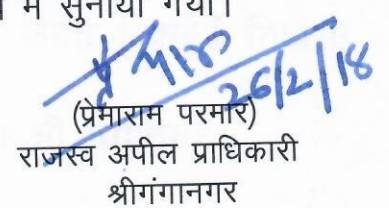 में सुनाया गया।
26/2/18
(प्रेमाराम परमार)
राजस्व अपील प्राधिकारी
श्रीगंगानगर